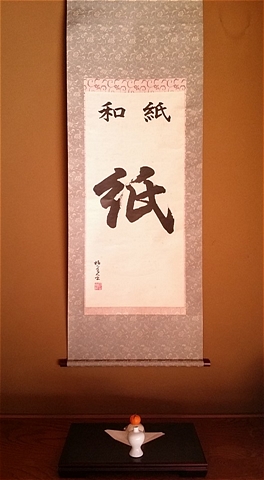 和紙
紙